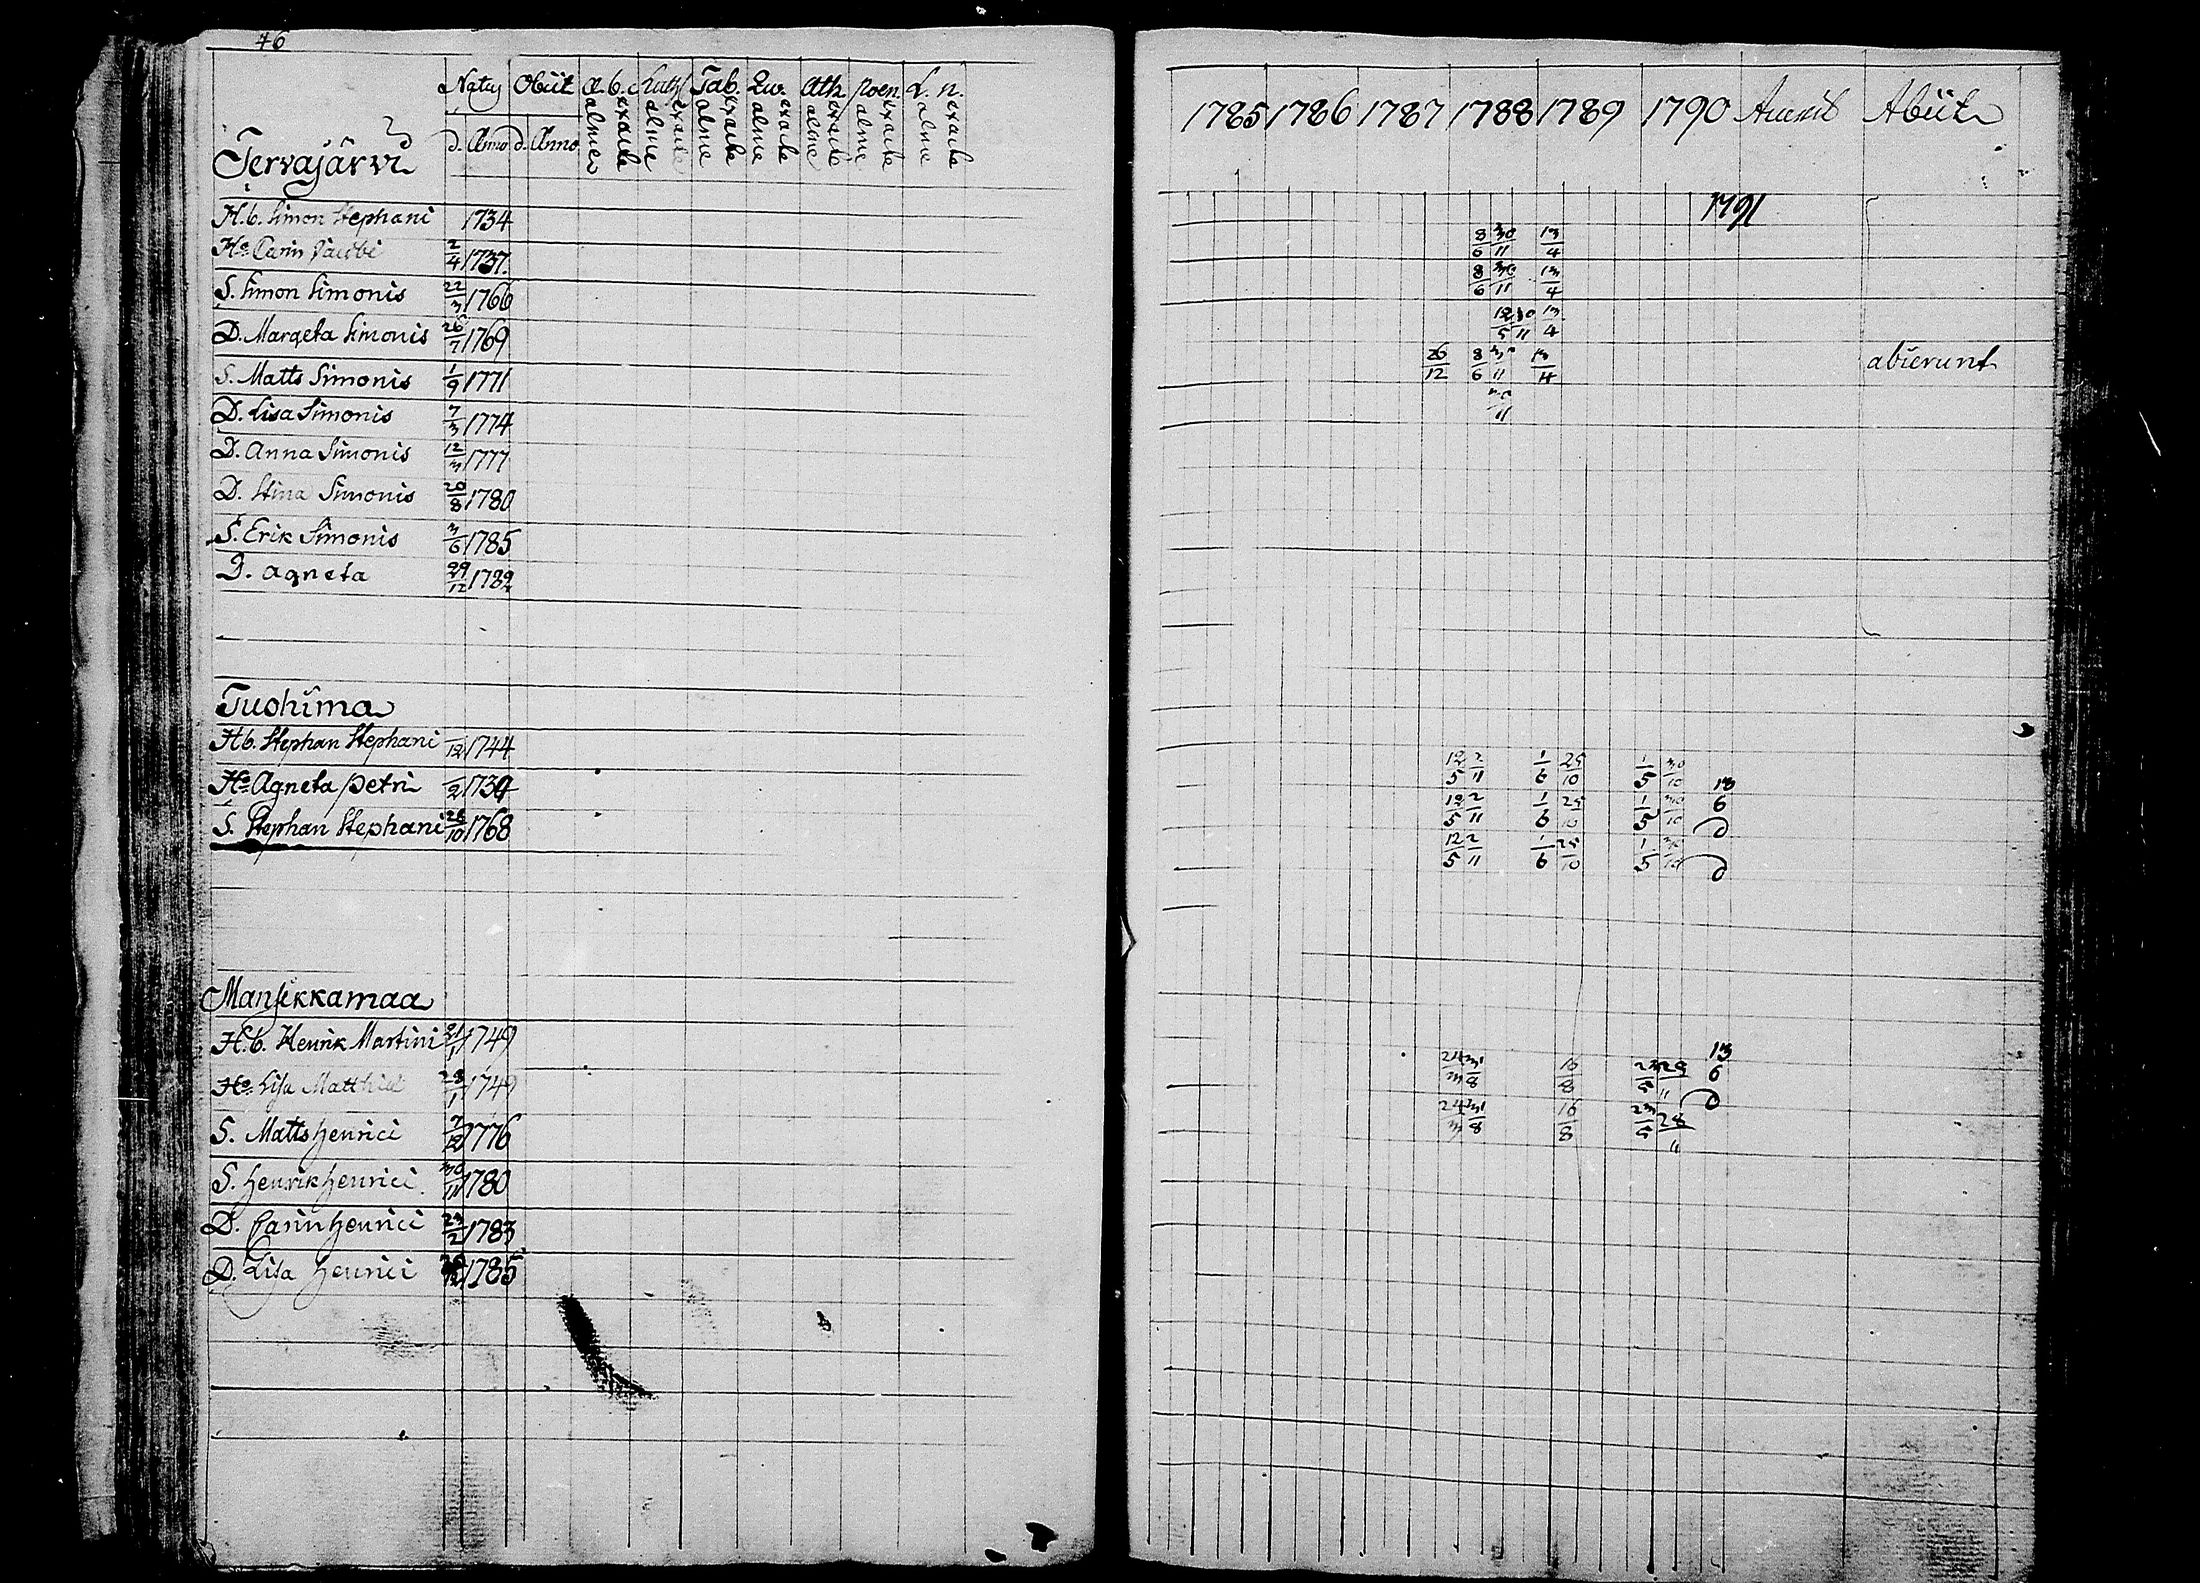 46
Natus Obiit A.b.c Luth Tab. Qu. Ath. poen. L. n.
d. Anno d. Anno
Tervajärvi
H.b. Simon Stephani 1734
Ha Carin Jacobi 2/4 1737.
S. Simon Simonis 22/3 1766
D. Margeta Simonis 26/7 1769
S. Matts Simonis 1/9 1771
D. Lisa Simonis 7/3 1774
D. Anna Simonis 12/3 1777
D. Stina Simonis 20/8 1780
S. Erik Simonis 3/6 1785
D. Agneta 29/12 1782
Tuohima
H.b. Stephan Stephani /12 1744
Ha Agneta petri /2 1734
S. Stephan Stephani 28/10 1768
Mansikkamaa
H.b. Henrik Martini 21/1 1749
Ha Lisa Matthiæ 28/1 1749
S. Matts henrici 7/12 1776
S. henrik henrici 30/11 1780
D. Carin henrici 23/2 1783
D. Lisa henrici 1785
1785 1786 1787 1788 1789 1790 Accessit Abiit
1791
8/6 30/11 13/4
8/6 30/11 13/4
12/5 30/11 13/4
26/12 8/6 3/11 13/4 abierunt
30/11
12/5 2/11 1/6 25/10 1/5 30/10
12/5 2/11 1/6 25/10 1/5 30/10 13/6
12/5 2/11 1/6 25/10 1/5 30/10
24/3 31/8 16/8 23/5 28/11 13/6
24/3 31/8 16/8 23/5 28/11